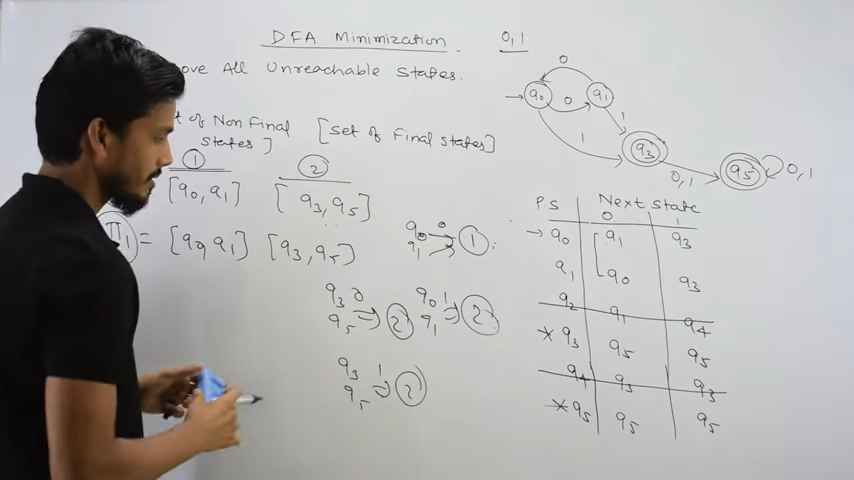 DFA Minimization. 0,1
ove All Unreachable States.
t of Non Final States] [Set of Final States]
1 2
[q0, q1] [q3, q5]
π1 = [q0, q1] [q3, q5]
q0 0
q1 1
q3 0 q0 1
q5 => 2 q1 => 2
q3 1
q5 => 2
0
q0 0 q1
1 1
q3
0,1 q5 0,1
PS Next State
0 1
→ q0 q1 q3
q1 q0 q3
q2 q1 q4
* q3 q5 q5
q4 q3 q3
* q5 q5 q5